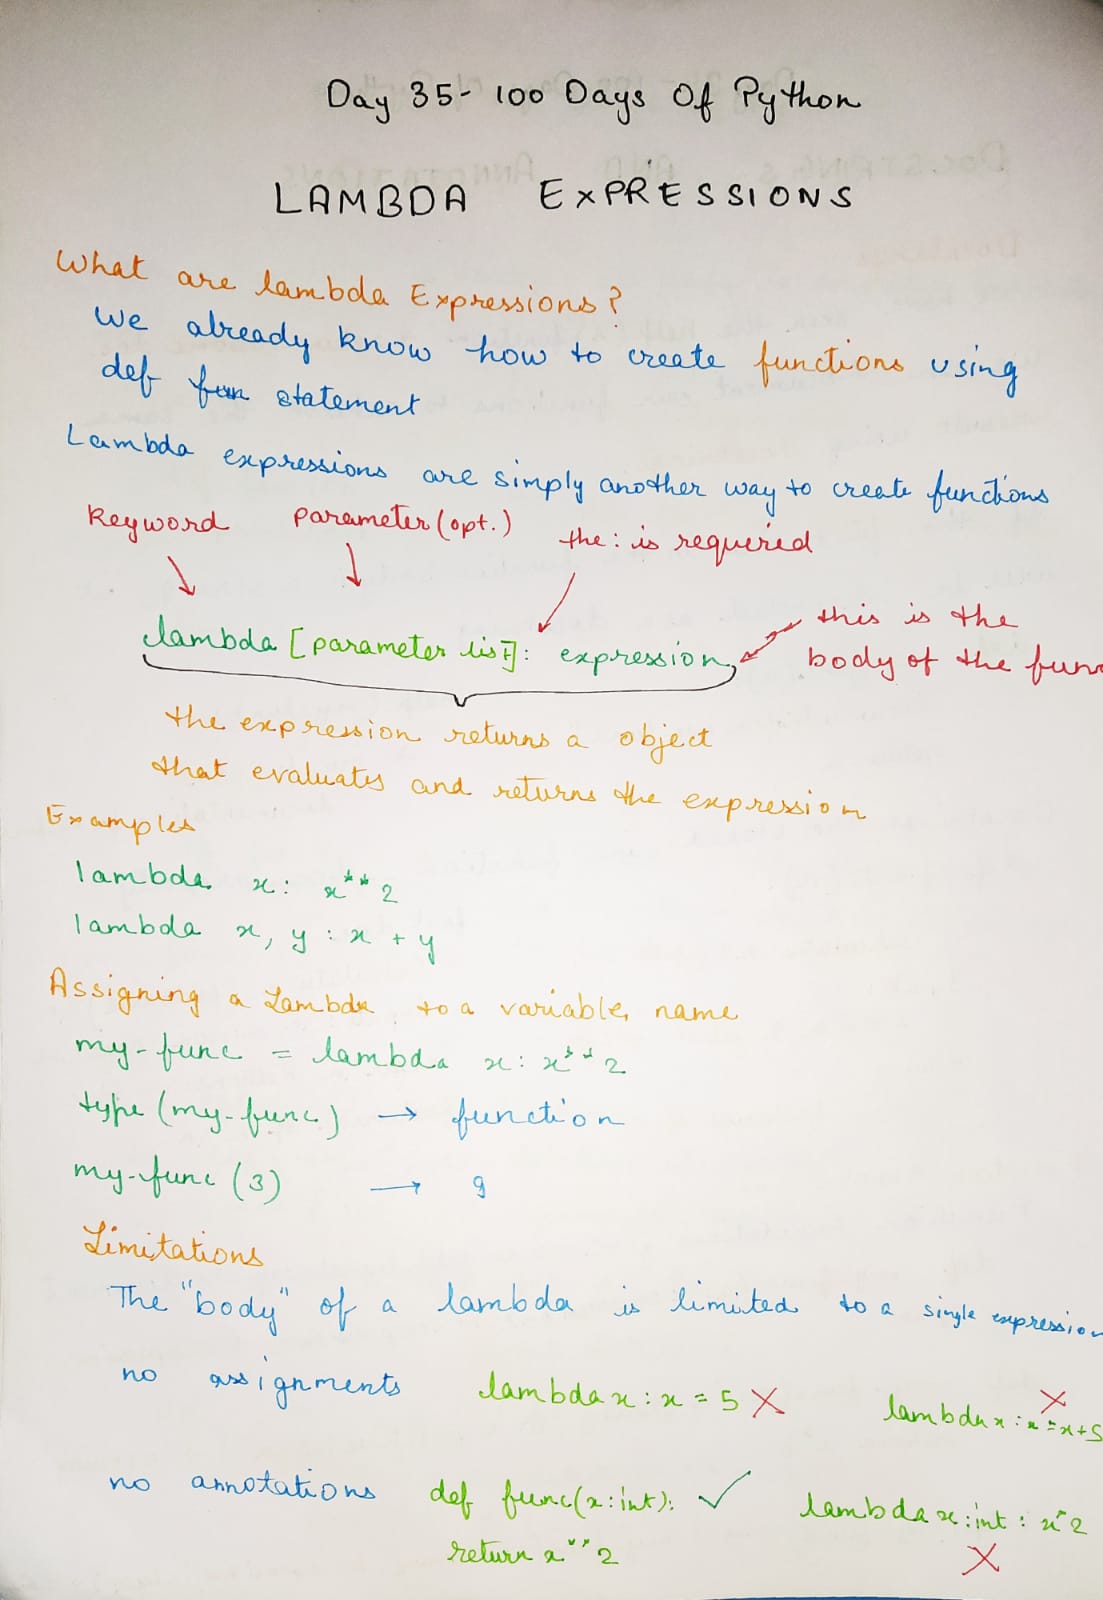 Day 35- 100 Days Of Python
LAMBDA EXPRESSIONS
What are lambda Expressions?
We already know how to create functions using
def fun statement
Lambda expressions are simply another way to create functions
Keyword parameter (opt.) the : is requeried
lambda [parameter list]: expression
this is the
body of the func
the expression returns a object
that evaluates and returns the expression
Examples
lambda x: x**2
lambda x, y : x + y
Assigning a Lambda to a variable name
my-func = lambda x: x**2
type (my-func) → function
my-func (3) → 9
Limitations
The "body" of a lambda is limited to a single expression
no assignments lambda x : x = 5 X lambda x : x = x+5 X
no annotations def func(x:int): ✓ lambda x:int : x*2 X
return x**2